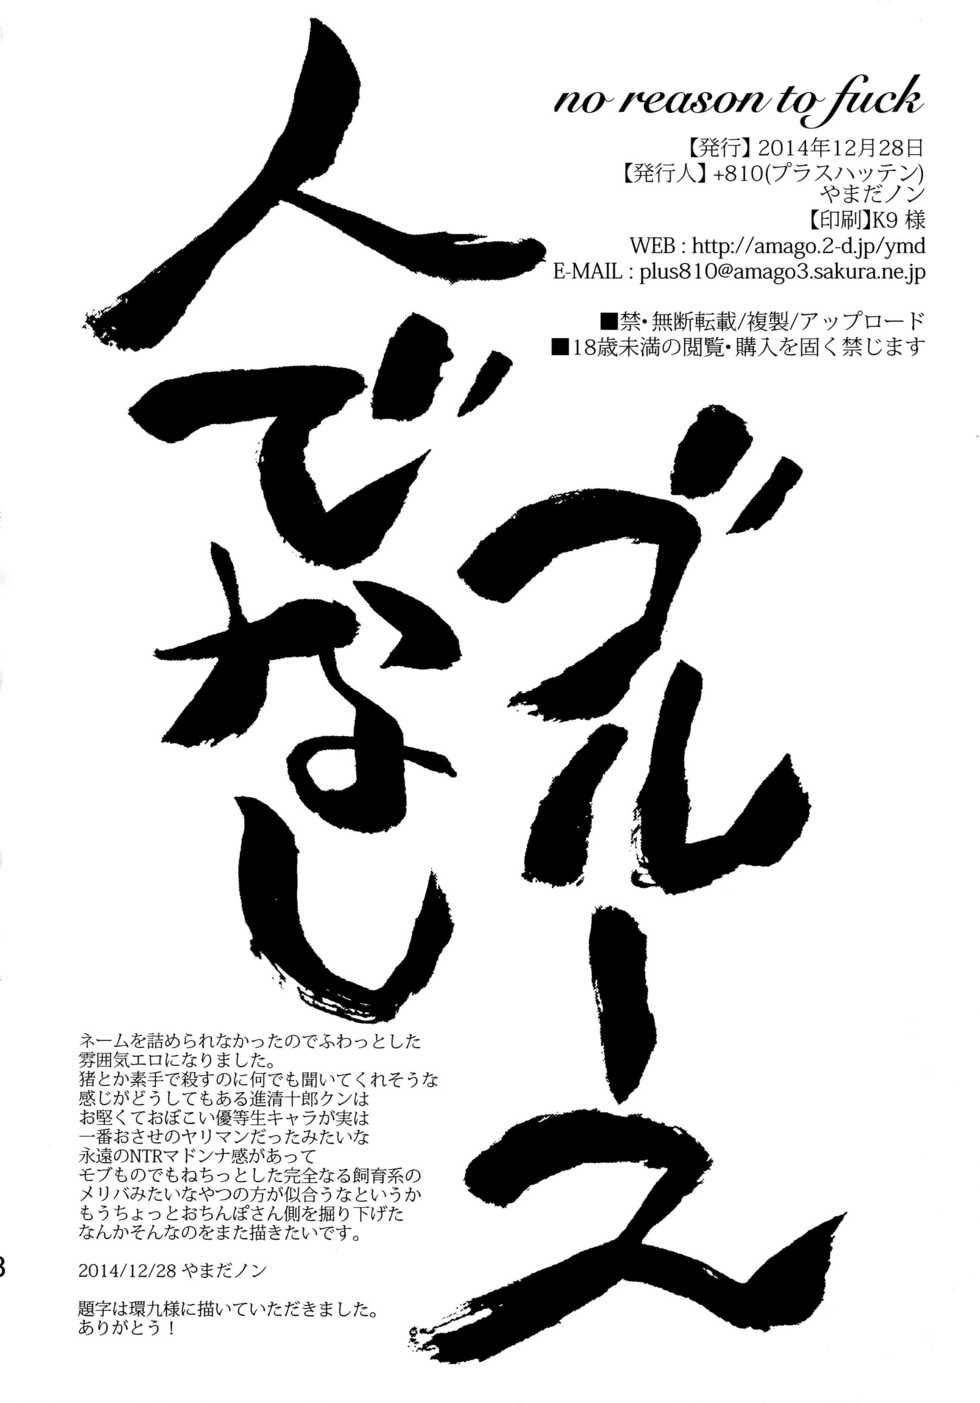 no reason to fuck
【発行】2014年12月28日
【発行人】+810(プラスハッテン)
やまだノン
【印刷】K9 様
WEB : http://amago.2-d.jp/ymd
E-MAIL : plus810@amago3.sakura.ne.jp
■禁・無断転載/複製/アップロード
■18歳未満の閲覧・購入を固く禁じます
ブルース
人でなし
ネームを詰められなかったのでふわっとした
雰囲気エロになりました。
猪とか素手で殺すのに何でも聞いてくれそうな
感じがどうしてもある進清十郎クンは
お堅くておぼこい優等生キャラが実は
一番おさせのヤリマンだったみたいな
永遠のNTRマドンナ感があって
モブものでもねちっとした完全なる飼育系の
メリバみたいなやつの方が似合うなというか
もうちょっとおちんぽさん側を掘り下げた
なんかそんなのをまた描きたいです。
2014/12/28 やまだノン
題字は環九様に描いていただきました。
ありがとう！